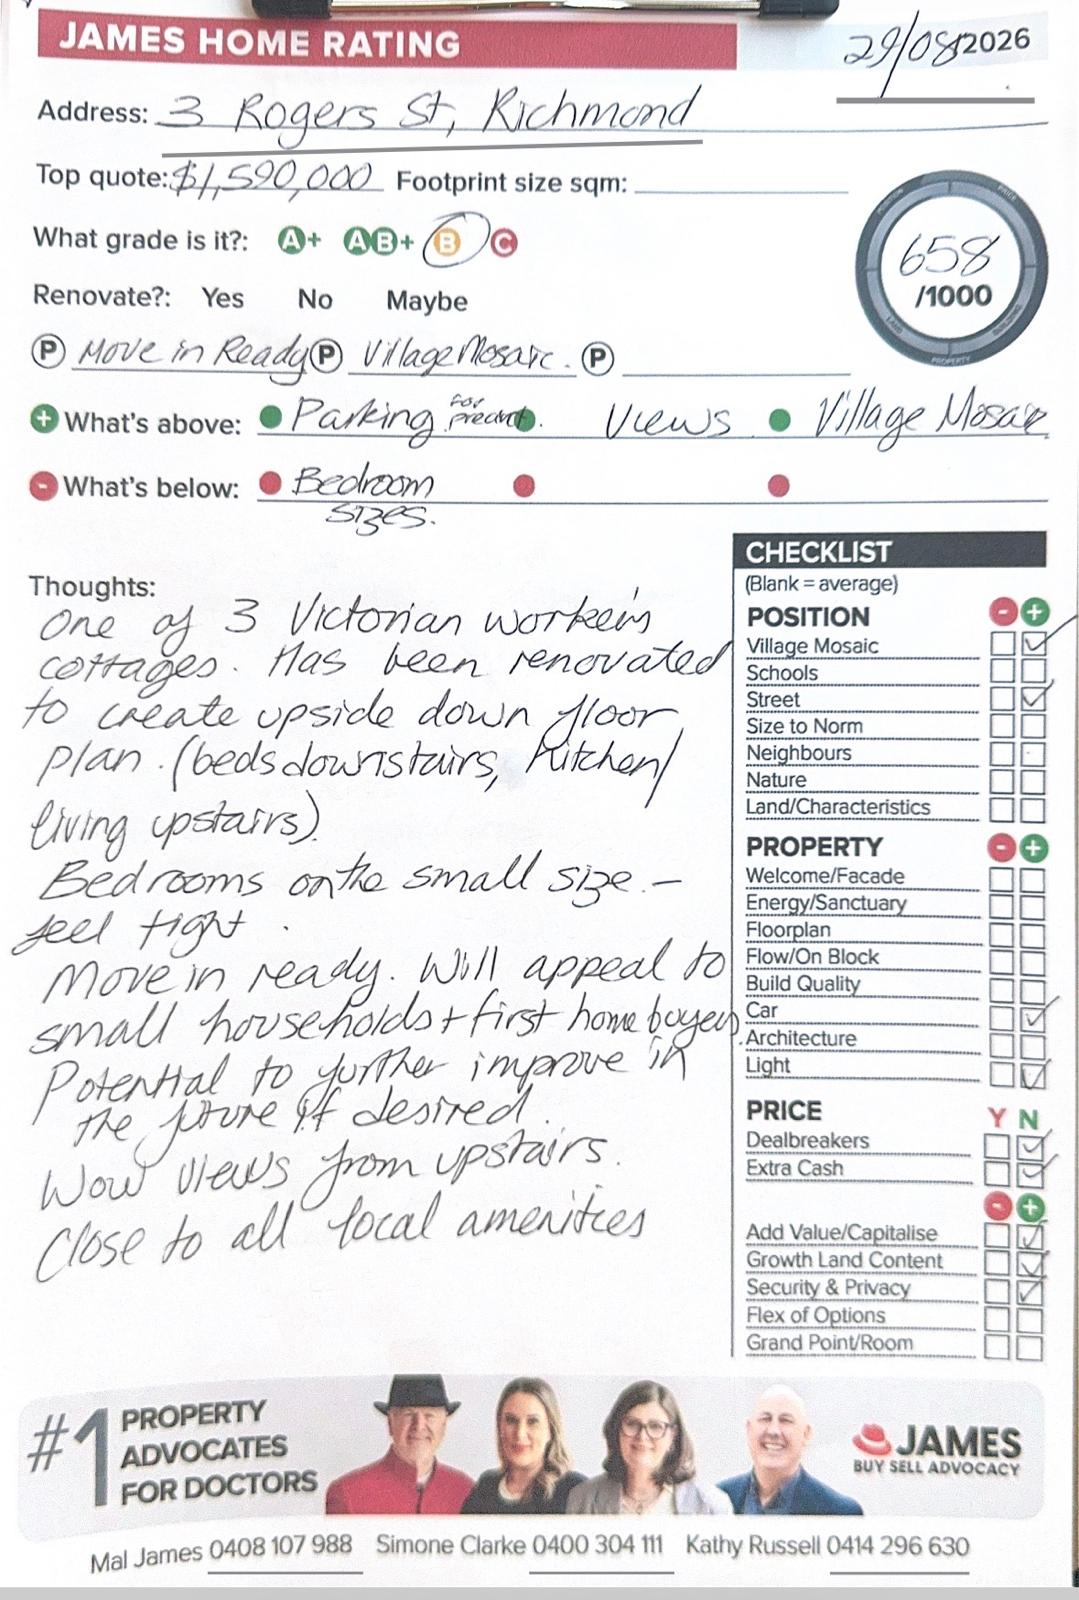 JAMES HOME RATING
29/08/2026
Address: 3 Rogers St, Richmond
Top quote: $1,590,000 Footprint size sqm:
What grade is it?: A+ AB+ B C
658
/1000
Renovate?: Yes No Maybe
P Move in Ready P Village Mosaic. P
+ What's above: Parking for precinct. Views Village Mosaic
- What's below: Bedroom sizes.
Thoughts:
One of 3 Victorian worker's
cottages. Has been renovated
to create upside down floor
plan. (beds downstairs, kitchen/
living upstairs).
Bedrooms on the small size. -
feel tight.
Move in ready. Will appeal to
small households + first home buyers.
Potential to further improve in
the future if desired.
Wow views from upstairs.
Close to all local amenities
CHECKLIST
(Blank = average)
POSITION - +
Village Mosaic
Schools
Street
Size to Norm
Neighbours
Nature
Land/Characteristics
PROPERTY - +
Welcome/Facade
Energy/Sanctuary
Floorplan
Flow/On Block
Build Quality
Car
Architecture
Light
PRICE Y N
Dealbreakers
Extra Cash
- +
Add Value/Capitalise
Growth Land Content
Security & Privacy
Flex of Options
Grand Point/Room
#1 PROPERTY
ADVOCATES
FOR DOCTORS
JAMES
BUY SELL ADVOCACY
Mal James 0408 107 988 Simone Clarke 0400 304 111 Kathy Russell 0414 296 630